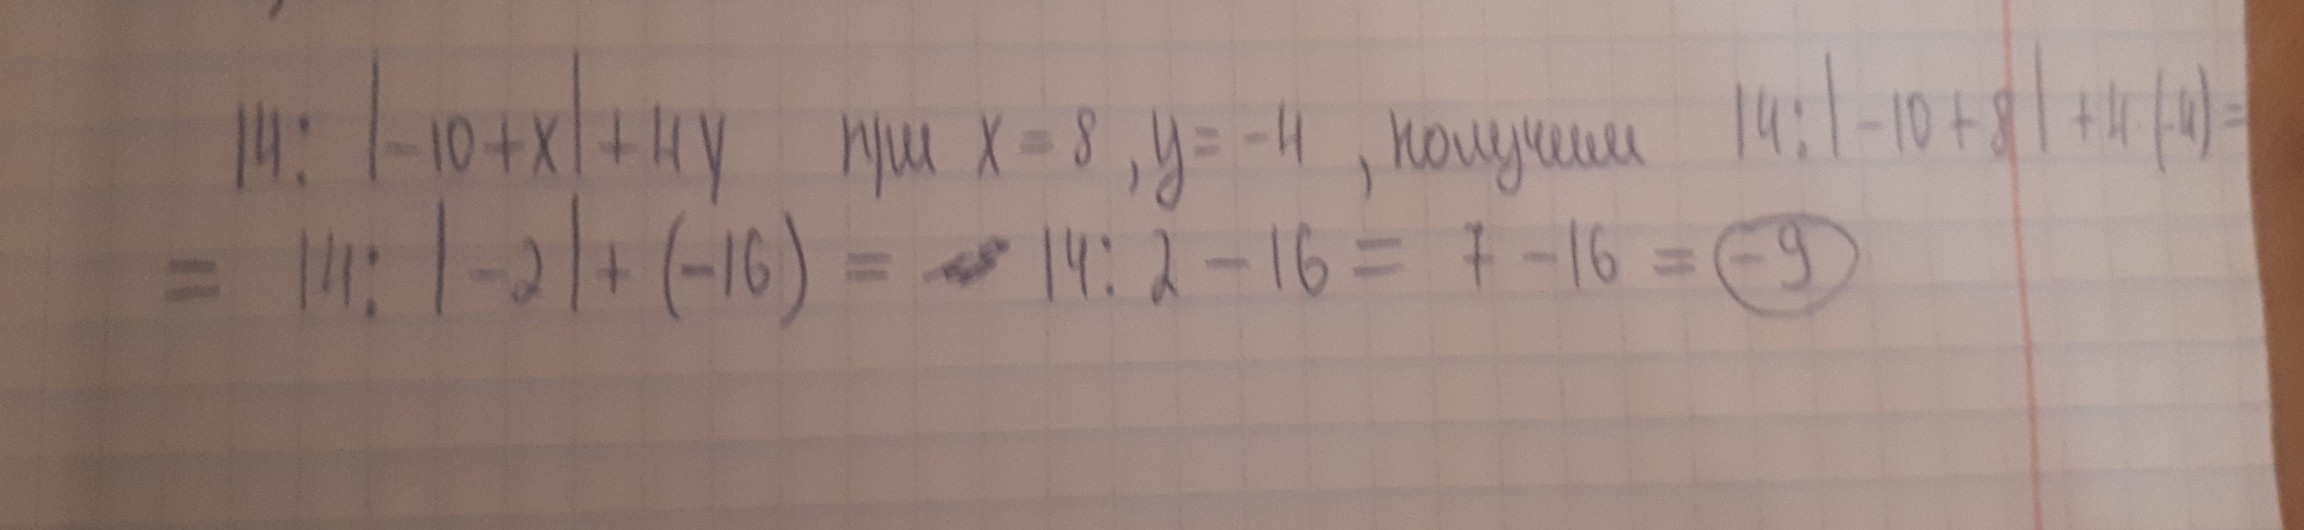 14: |-10+x|+4y при x=8, y=-4, получим 14:|-10+8|+4·(-4)=
= 14: |-2|+(-16)= 14: 2-16= 7-16=-9